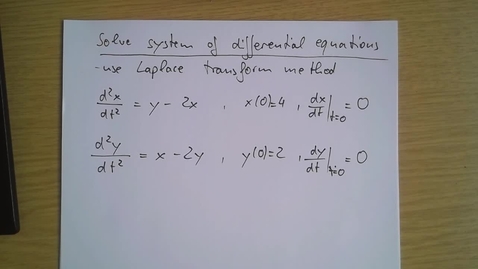 Solve system of differential equations
- use Laplace transform method
d²x/dt² = y - 2x , x(0)=4 , dx/dt|t=0 = 0
d²y/dt² = x - 2y , y(0)=2 , dy/dt|t=0 = 0